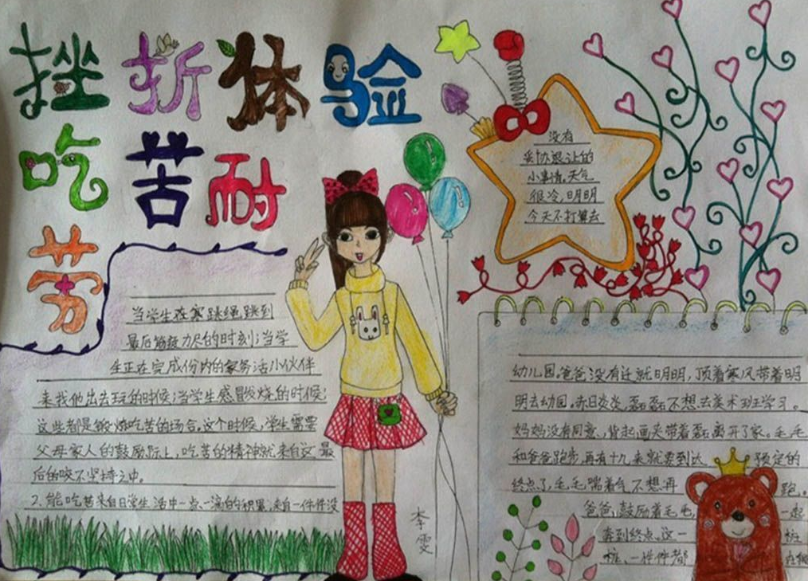 挫折体验
吃苦耐
劳
没有
妥协退让的
小事情,天气
很冷,明明
今天不打算去
当学生在赛跑,跳绳,跳到
最后筋疲力尽的时刻;当学
生正在完成份内的家务活小伙伴
来找他出去玩的时候;当学生感冒发烧的时候;
这些都是锻炼吃苦的场合。这个时候,学生需要
父母家人的鼓励际上,吃苦的精神就来自这最
后的咬牙坚持之中。
2、能吃苦来自日常生活中一点一滴的积累,来自一件件没
李雯
幼儿园,爸爸没有迁就明明,顶着寒风带着明
明去幼园。赤日炎炎,磊磊不想去美术班学习。
妈妈没有同意,背起画夹带着磊磊离开了家。毛毛
和爸爸跑步,再有十九米就要到达预定的
终点了,毛毛喘着气不想再跑,
爸爸鼓励着毛毛,一起
奔到终点。这一桩
桩、一件件都